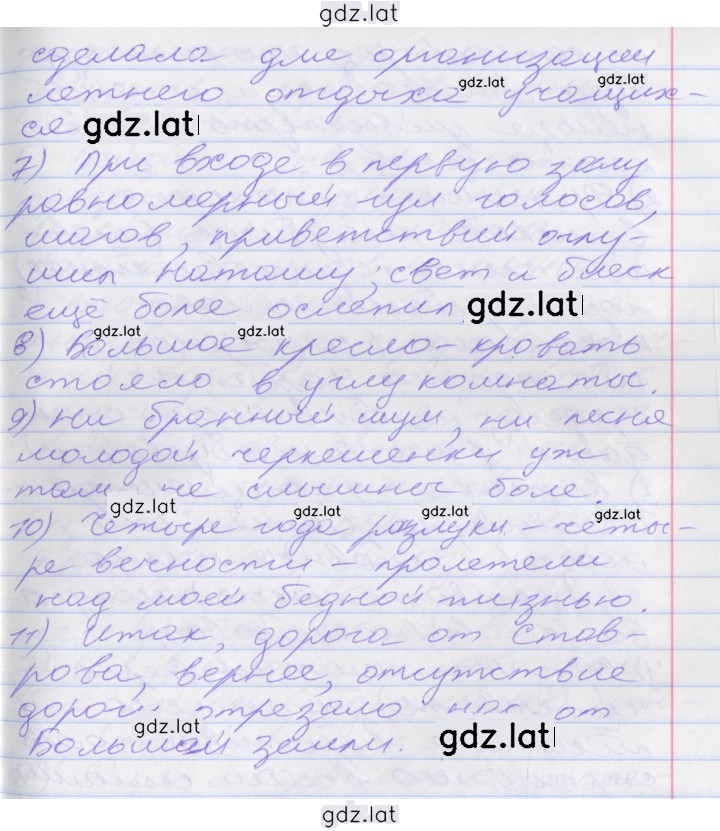 gdz.lat
сделала для организации
летнего отдыха учащих-
ся
7) При входе в первую залу
равномерный гул голосов,
шагов, приветствий оглу-
шил Наташу; свет и блеск
ещё более ослепил
8) Большое кресло-кровать
стояло в углу комнаты.
9) Ни бранный шум, ни песня
молодой черкешенки уж
там не слышны боле.
10) Четыре года разлуки – четы-
ре вечности – пролетели
над моей бедной жизнью.
11) Итак, дорога от Став-
рова, вернее, отсутствие
дороги отрезало нас от
Большой земли.
gdz.lat